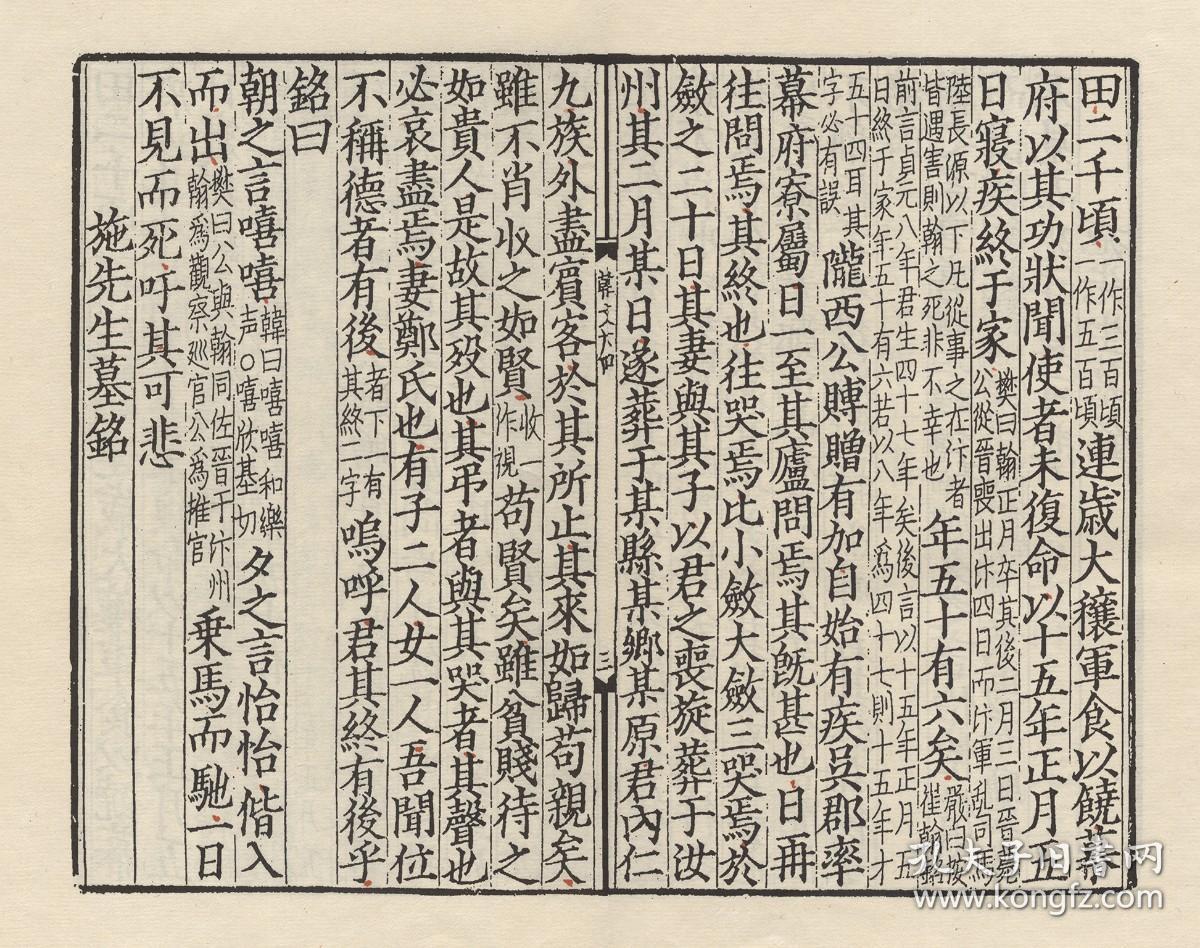 田二千頃一作三百頃一作五百頃連歲大穰軍食以饒幕
府以其功狀聞使者未復命以十五年正月五
日寢疾終于家樊曰翰正月卒其後二月三日晉薨公從晉喪出汴四日而汴軍亂司馬
陸長源以下凡從事之在汴者皆遇害則翰之死非不幸也年五十有六矣嚴曰按崔翰銘
前言貞元八年君生四十七年矣後言以十五年正月五日終于家年五十有六若以八年爲四十七則十五年才
五十四耳其字必有誤隴西公賻贈有加自始有疾吳郡率
幕府寮屬日一至其廬問焉其旣甚也日再
往問焉其終也往哭焉比小斂大斂三哭焉於
斂之二十日其妻與其子以君之喪旋葬于汝
州其二月某日遂葬于某縣某鄉某原君內仁
韓文廿四
三
九族外盡賓客於其所止其來如歸苟親矣
雖不肖收之如賢收一作視苟賢矣雖貧賤待之
如貴人是故其歿也其弔者與其哭者其聲也
必哀盡焉妻鄭氏也有子二人女一人吾聞位
不稱德者有後者下一有其終二字嗚呼君其終有後乎
銘曰
朝之言嘻嘻韓曰嘻嘻和樂声○嘻欣基切夕之言怡怡偕入
而出樊曰公與翰同佐晉于汴州翰爲觀察巡官公爲推官乗馬而馳一日
不見而死吁其可悲
施先生墓銘
孔夫子旧書网
www.kongfz.com